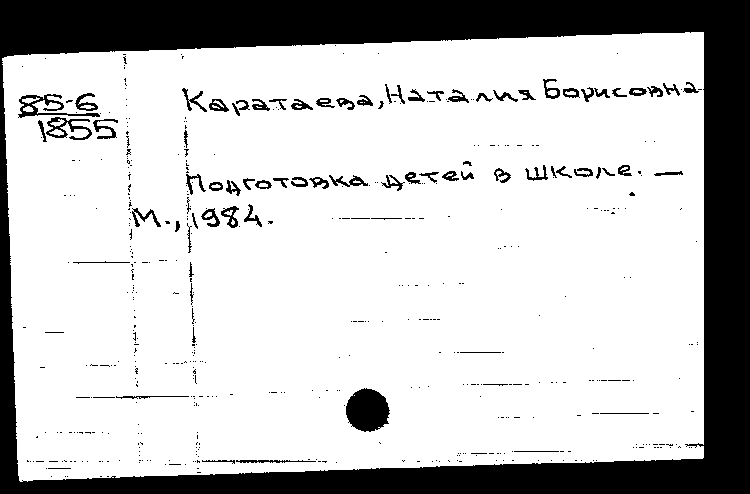 85-6
1855
Каратаева, Наталия Борисовна
Подготовка детей в школе. —
М., 1984.